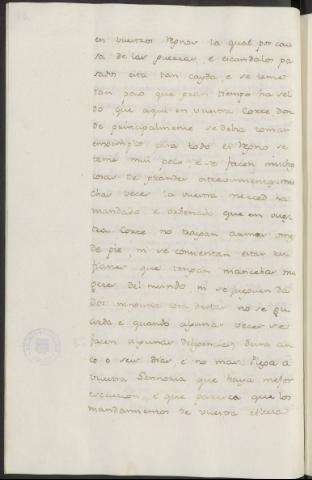 en vuestros Regnos la qual por cau
sa de las guerras, e escandalos pa
sados esta tan cayda e se teme
tan poco que gran tiempo ha sel
do que aqui en vuestra Corte don
de principalmente se debia tomar
enxemplo para todo el Regno se
teme mui poco, e se facen muchas
cosas de grandes atrevimientos mu
chas veces la vuestra merced ha
mandado e ordenado que en vues
tra Corte no trayan armas omes
de pie, ni se consientan estar ru
fianes que tengan mancebas mu
geres del mundo, ni se jueguen da
dos ninguna cosa destas no se gu
arda e quando algunas veces se
facen algunas diligencias duna cin
co o seis dias, e no mas. Plega a
vuestra Sennoria que haya mejor
execucion, e que paresca que los
mandamientos de vuestra Alteza